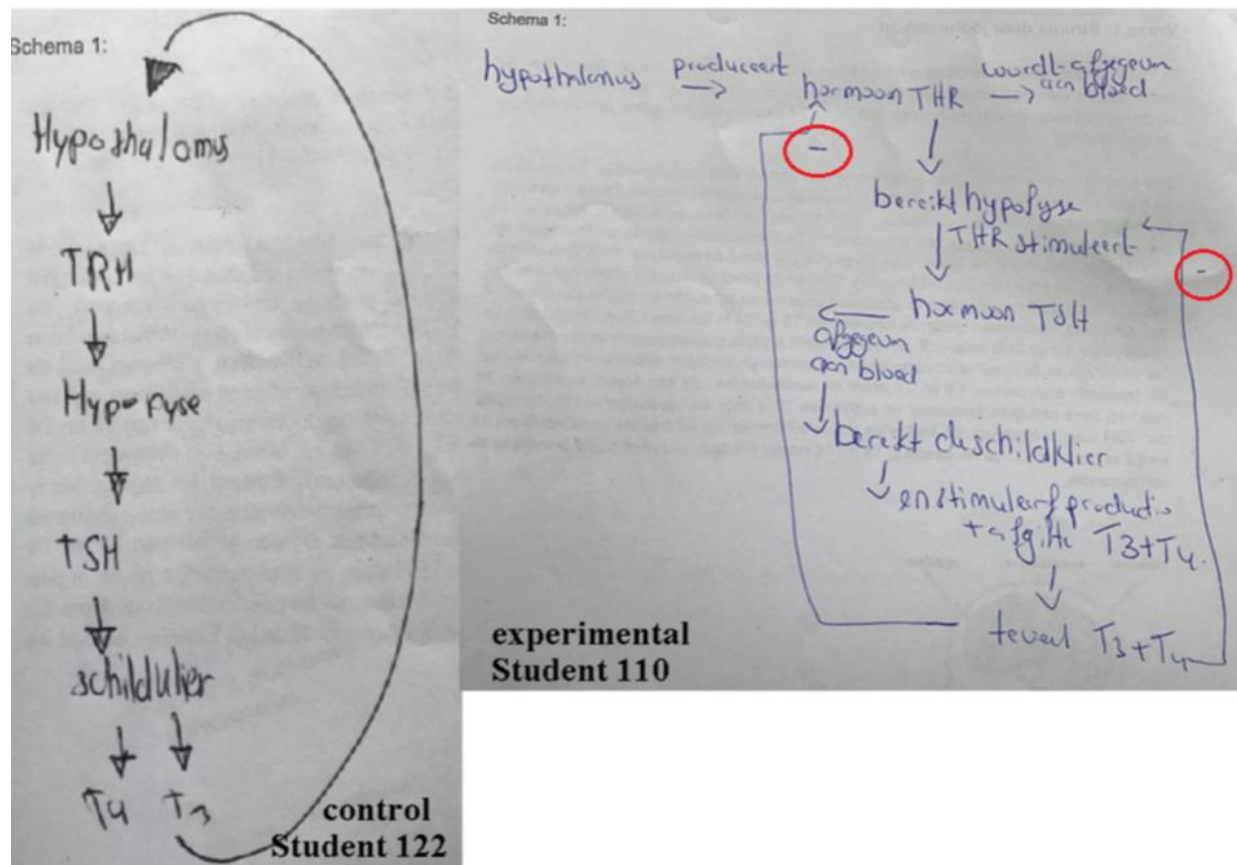 Schema 1:
Hypothalamus
TRH
Hypofyse
TSH
schildklier
T4 T3
control
Student 122
Schema 1:
hypothalamus produceert hormoon THR wordt afgegeven aan bloed
-
bereikt hypofyse
THR stimuleert
-
hormoon TSH
afgegeven
aan bloed
bereikt de schildklier
en stimuleert productie
+ afgifte T3+T4.
teveel T3+T4
experimental
Student 110